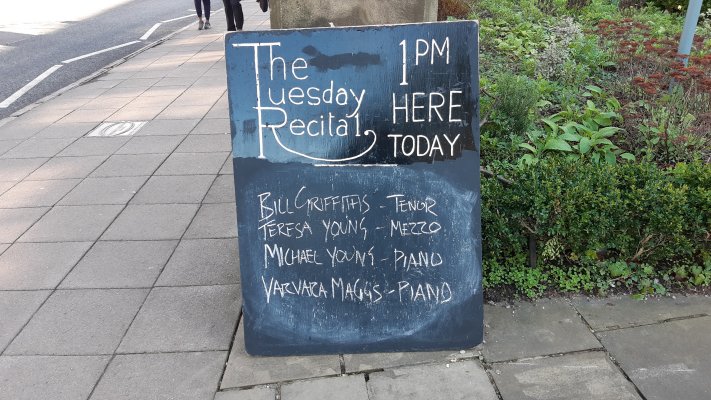 The
Tuesday
Recital
1PM
HERE
TODAY
BILL GRIFFITHS - TENOR
TERESA YOUNG - MEZZO
MICHAEL YOUNG - PIANO
VARVARA MAGGS - PIANO